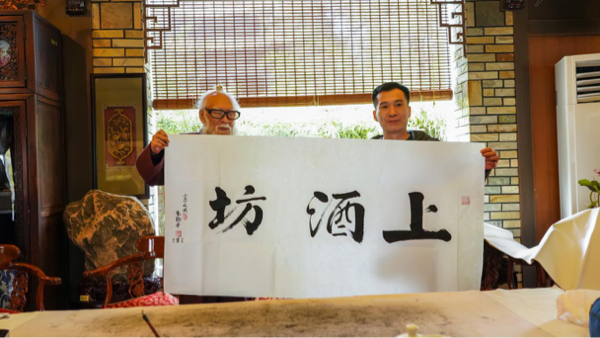 上酒坊